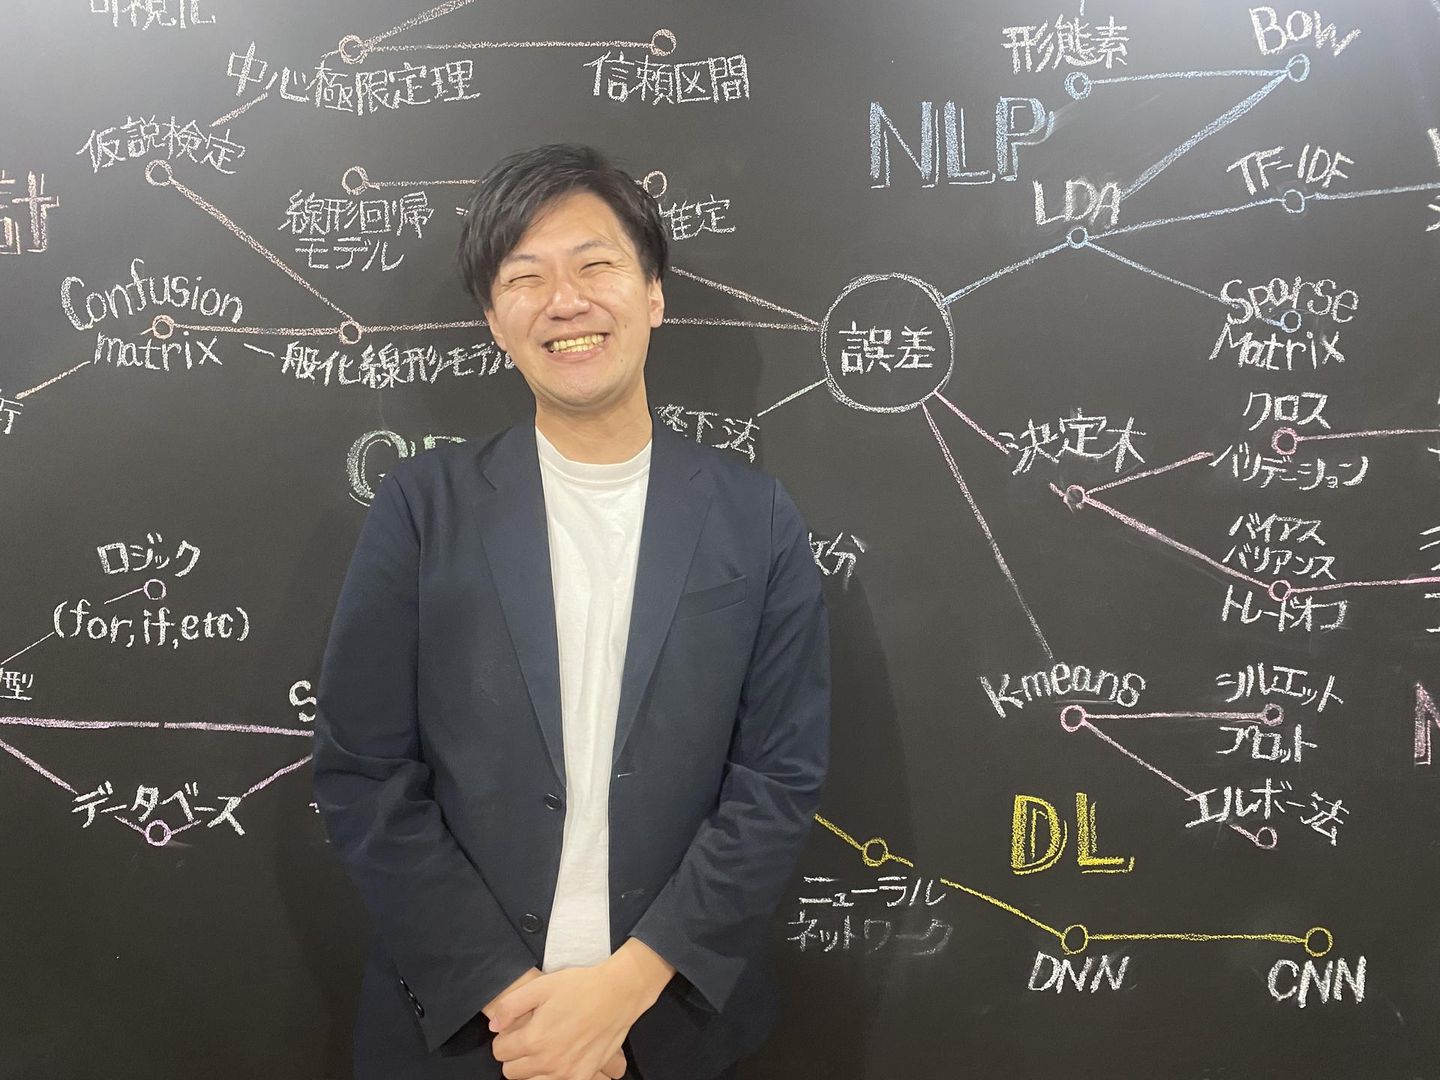 可視化
中心極限定理
信頼区間
仮説検定
計
線形回帰
モデル
推定
Confusion
matrix
一般化線形モデル
降下法
ロジック
(for, if, etc)
型
S
データベース
誤差
形態素
BOW
NLP
LDA
TF-IDF
Sparse
Matrix
決定木
クロス
バリデーション
バイアス
バリアンス
トレードオフ
K-means
シルエット
プロット
エルボー法
DL
ニューラル
ネットワーク
DNN
CNN